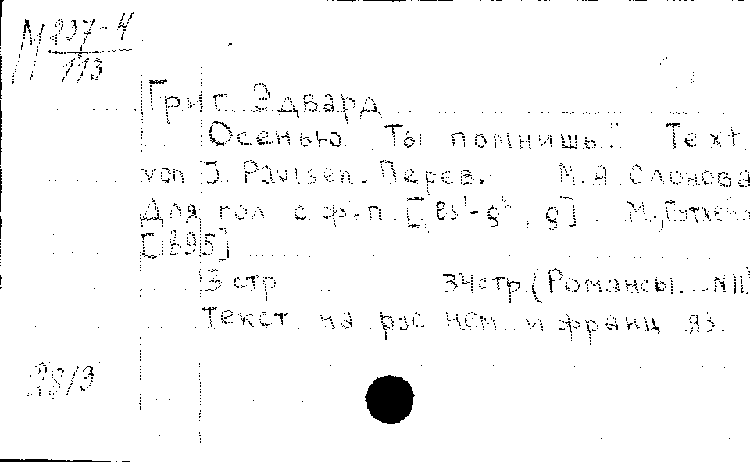 М 237-4
113
Григ Эдвард
Осенью. Ты помнишь.. Text
von J. Paulsen. Перев. М.А. Слонова
Для гол с ф-п. [es¹-g², g]. М., Гутхейл
[1895]
3 стр 34стр. (Романсы.. N11)
Текст на рус нем и франц яз.
28/3